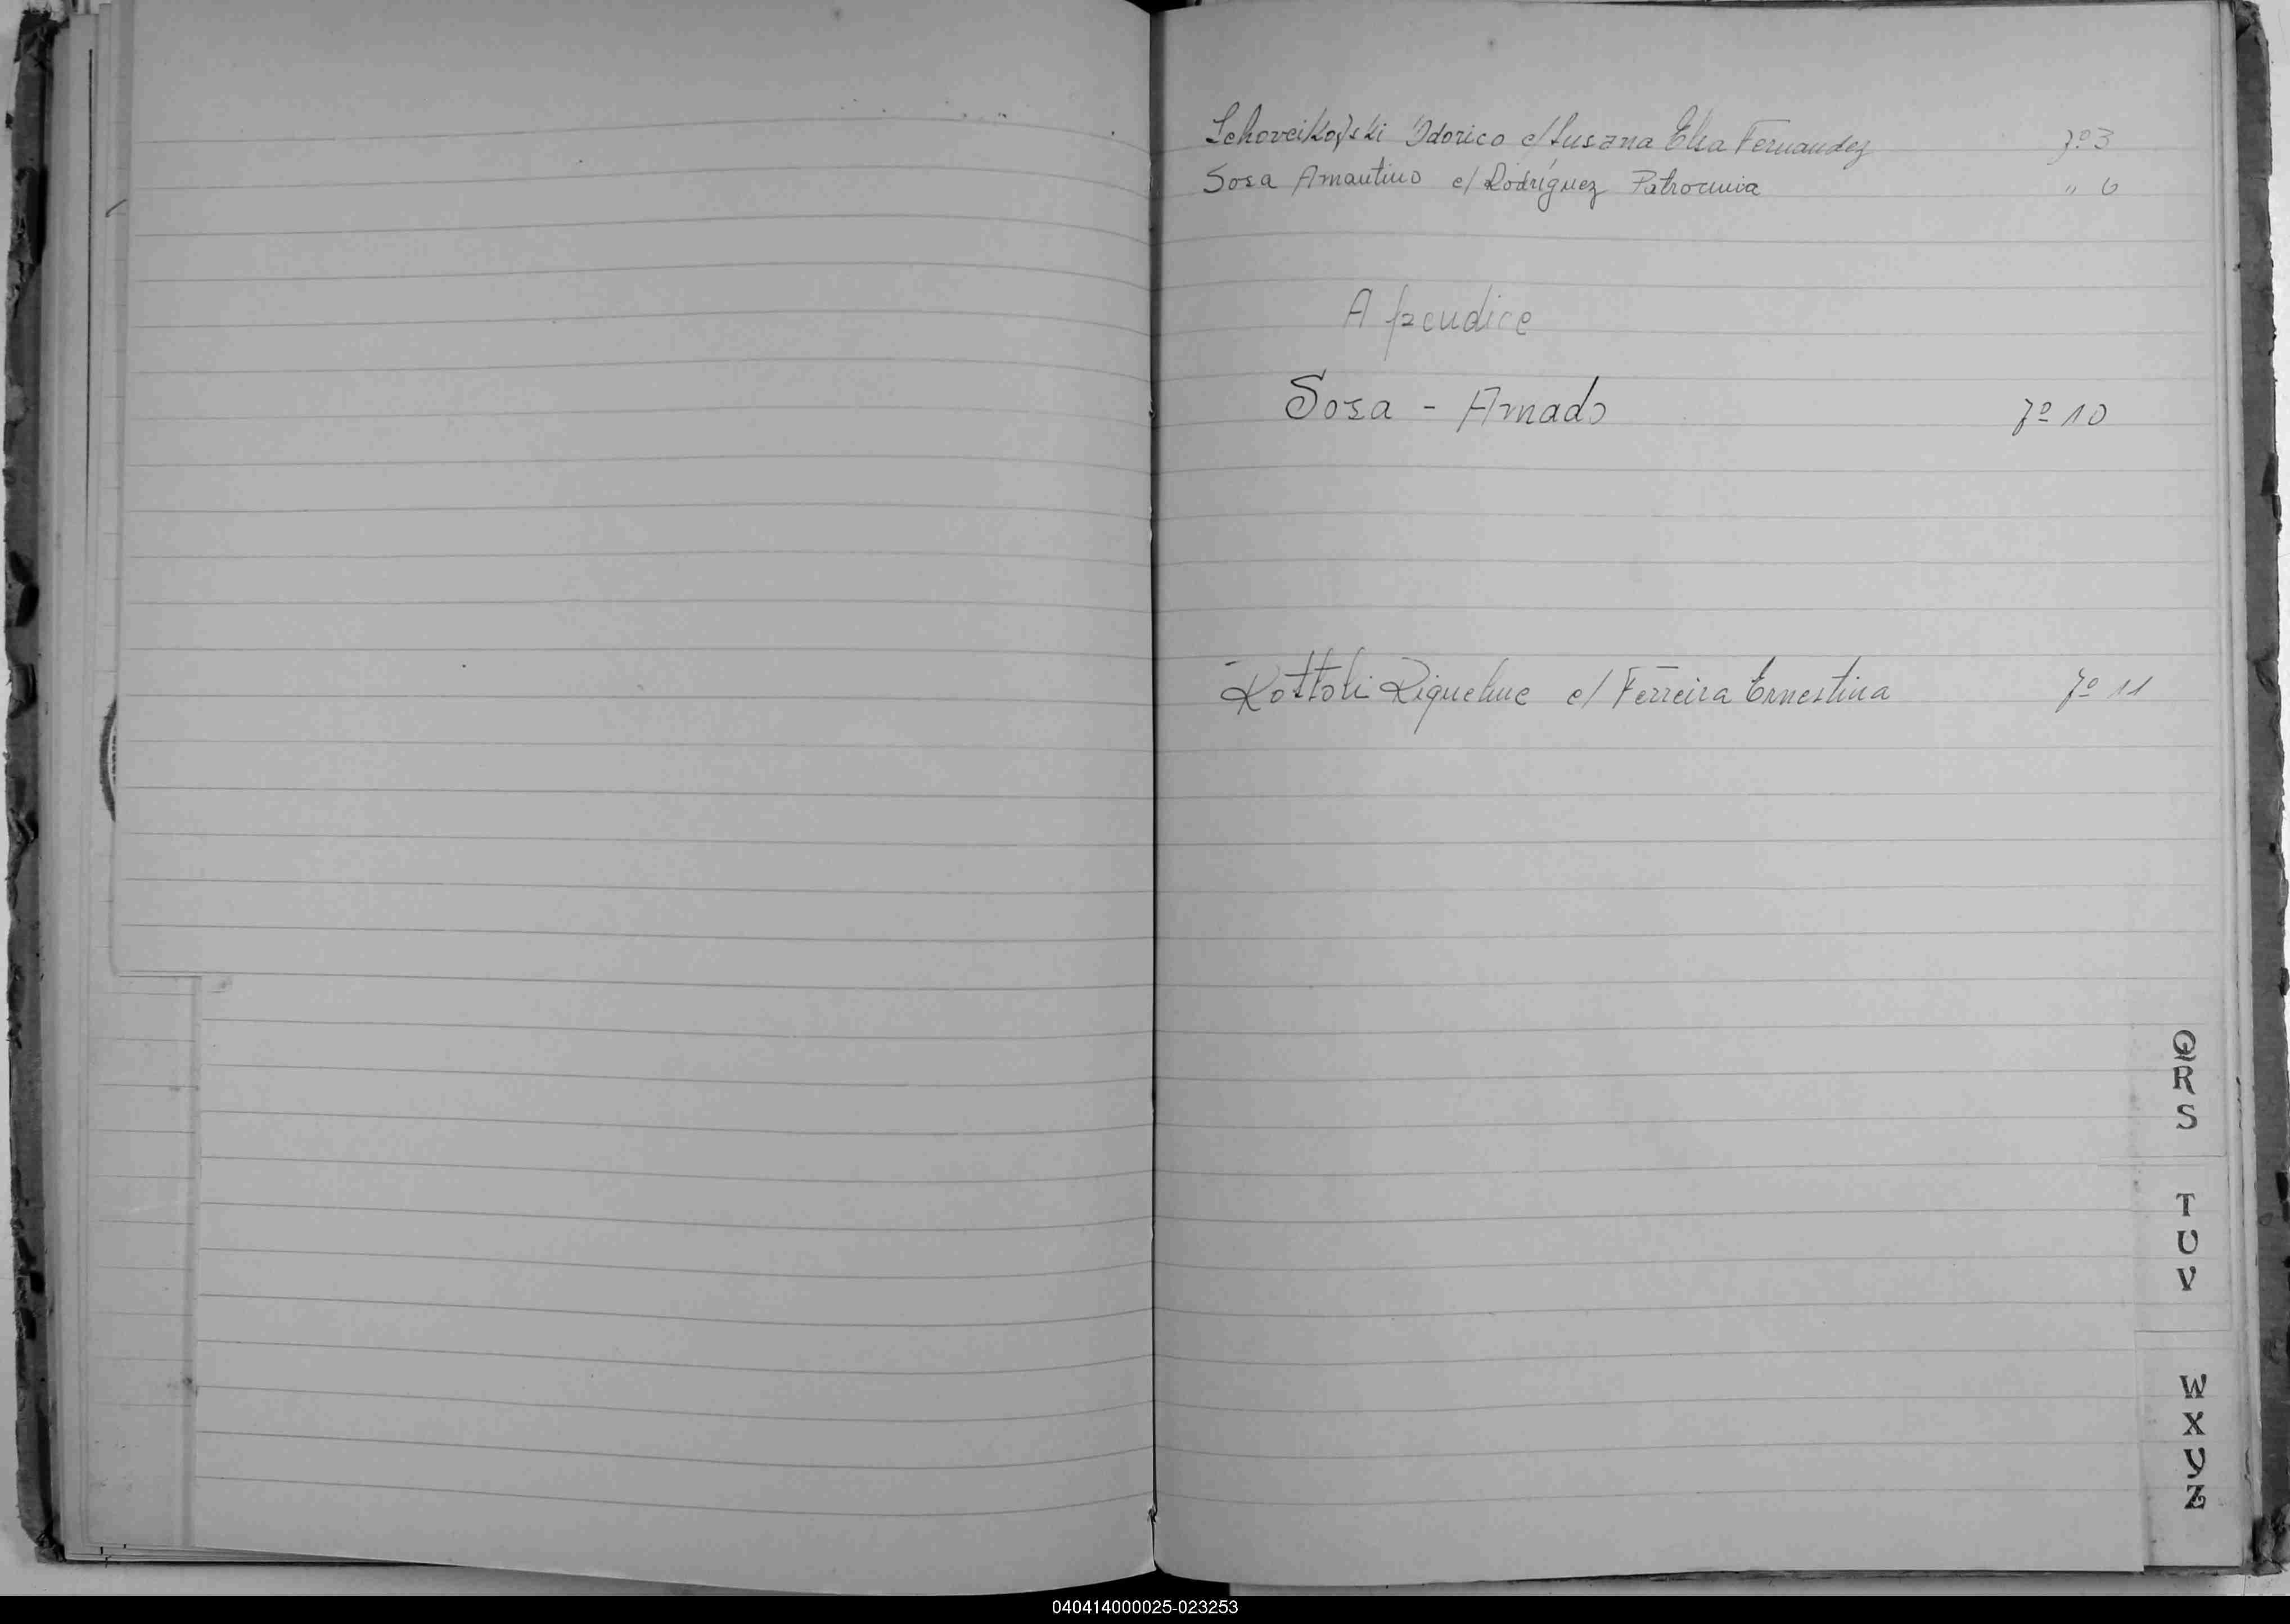 Schoveikofski Odorico c/ Susana Elsa Fernandez fº 3
Sosa Amantino c/ Rodríguez Patrocinia " 6
Apendice
Sosa - Amado fº 10
Rottoli Riquelme c/ Ferreira Ernestina fº 11
Q
R
S
T
U
V
W
X
Y
Z
040414000025-023253